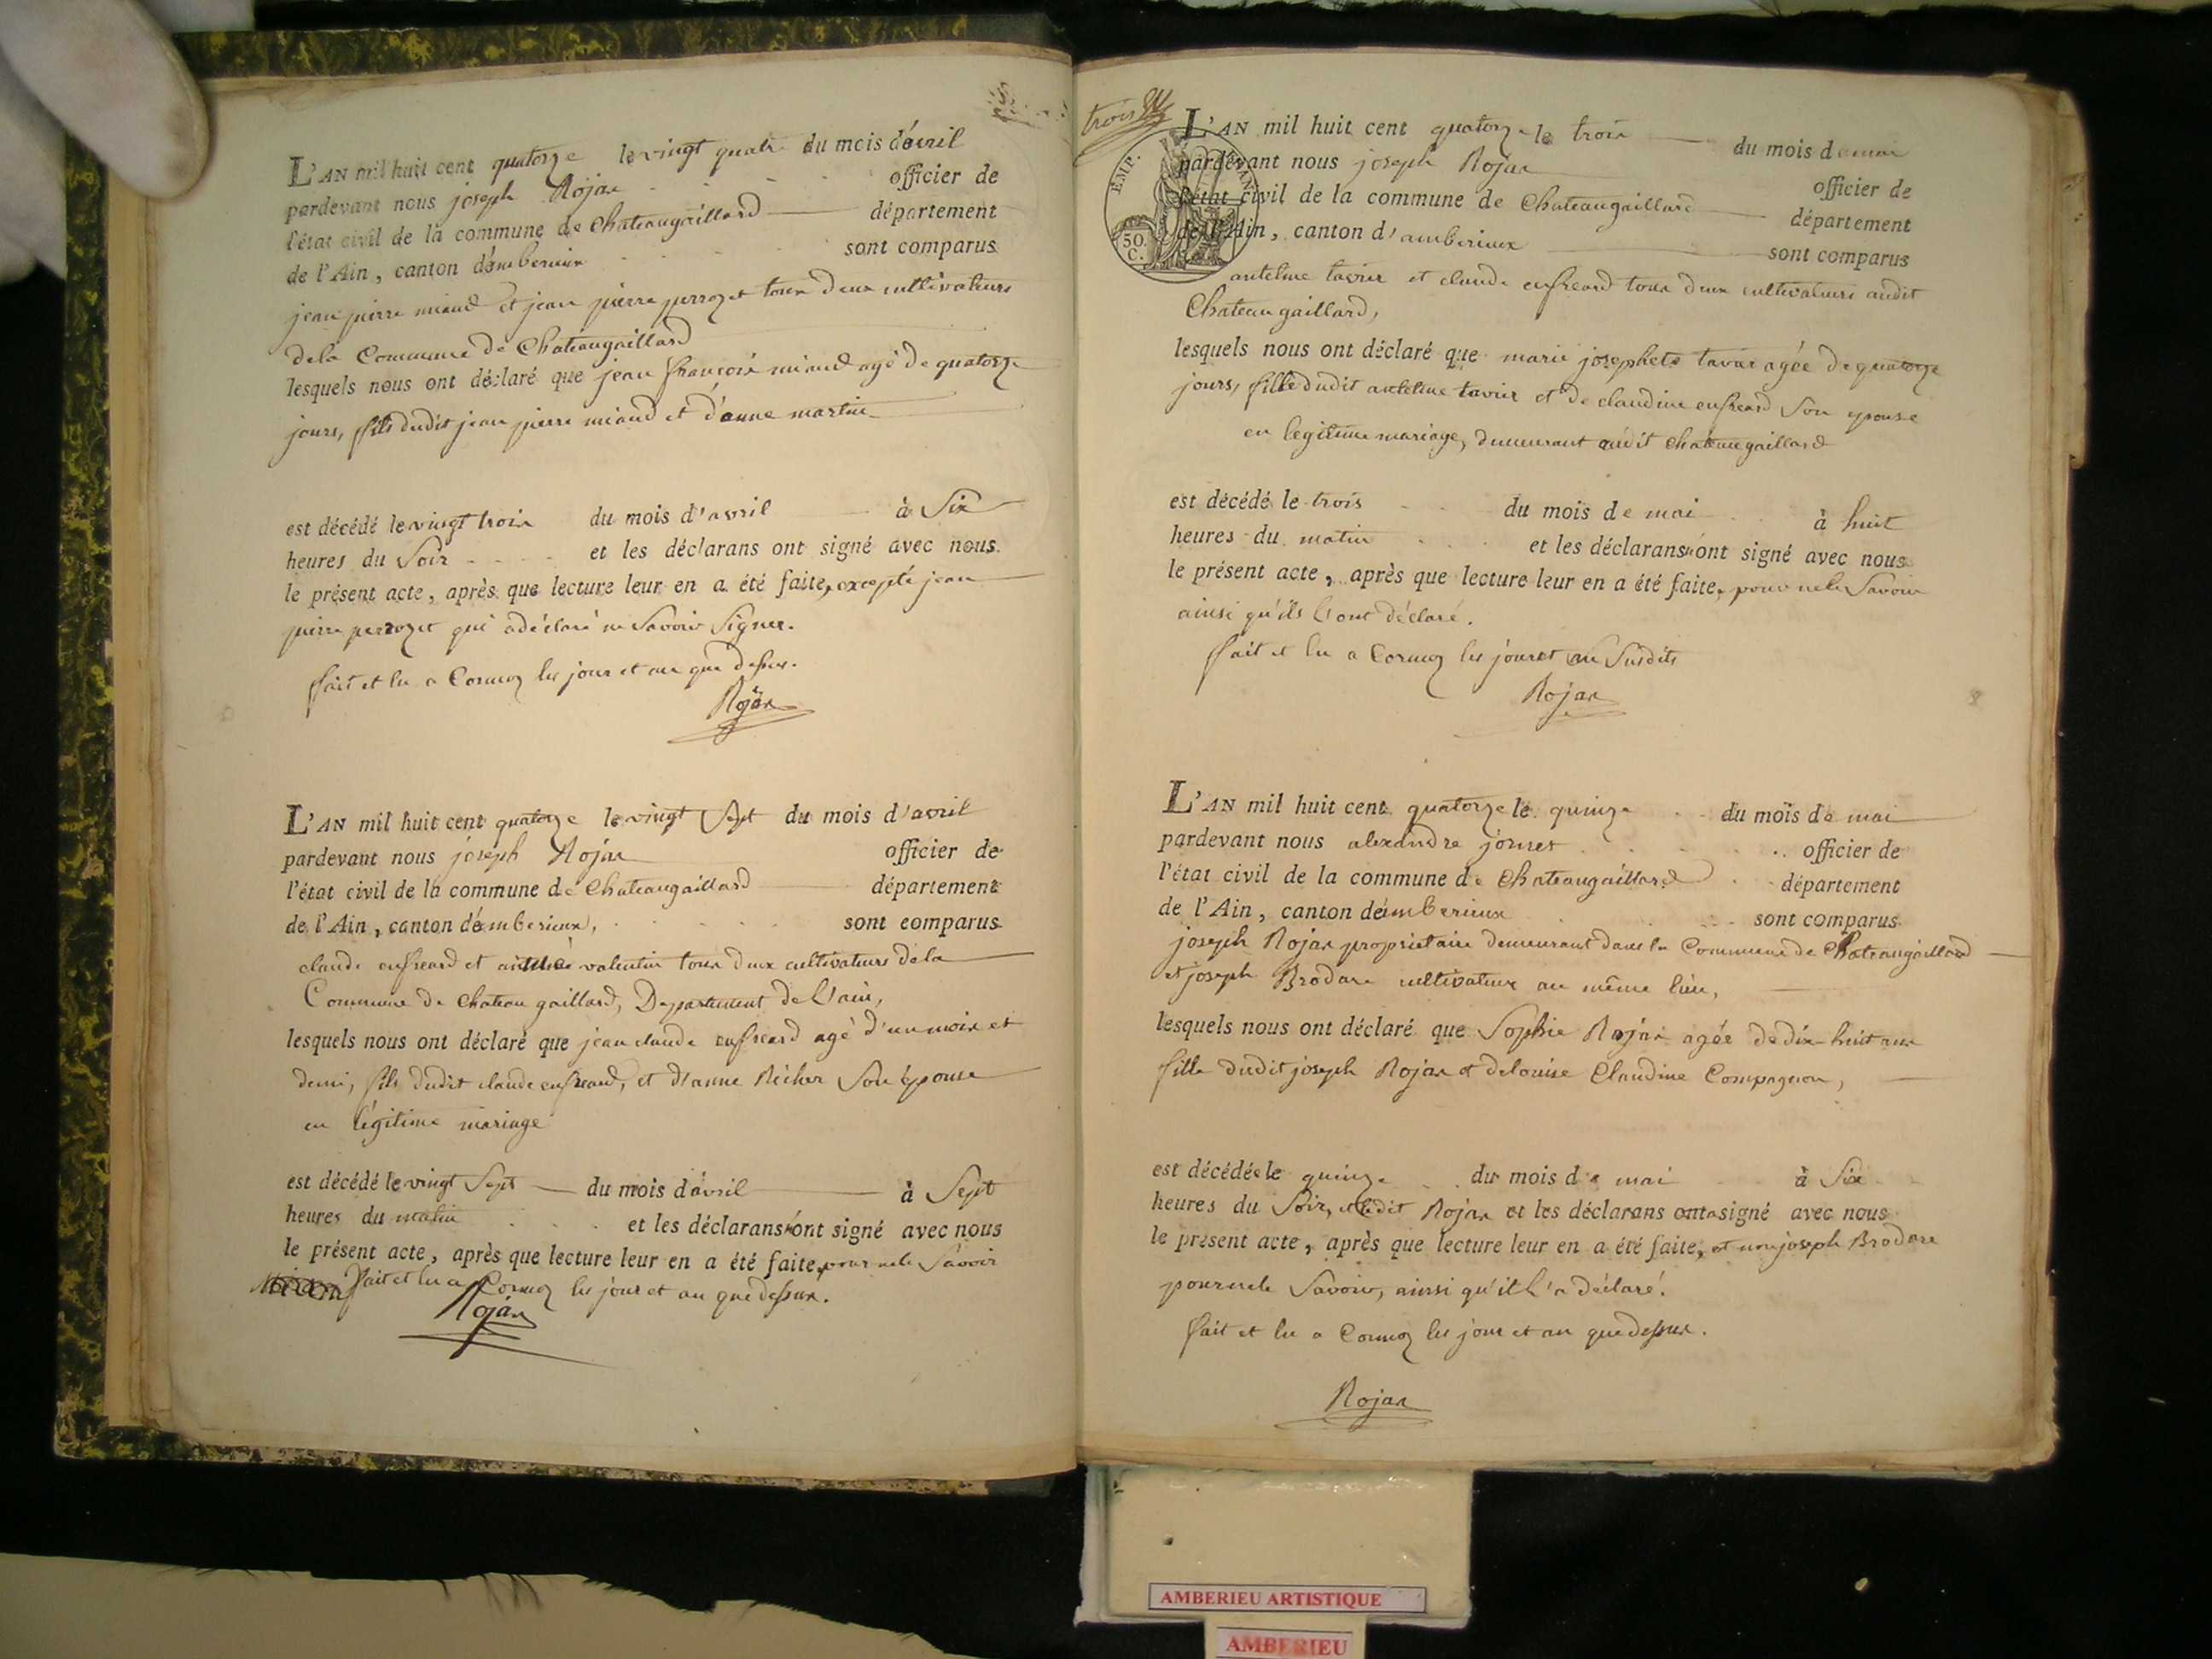 L'AN mil huit cent quatorze le vingt quatr du mois d'avril
pardevant nous joseph Rojax officier de
l'état civil de la commune de Chateaugaillard département
de l'Ain, canton d'amberieux sont comparus
jean pierre miand et jean pierre perrozet tous deux cultivateurs
de la Commune de Chateaugaillard
lesquels nous ont déclaré que jean françois miand agé de quatorze
jours, fils dudit jean pierre miand et d'anne martin
est décédé le vingt trois du mois d'avril à Six
heures du Soir et les déclarans ont signé avec nous
le présent acte, après que lecture leur en a été faite, excepté jean
pierre perrozet qui a déclaré ne Savoir Signer.
fait et lu a Cormoz les jour et an que dessus.
Rojax
L'AN mil huit cent quatorze le vingt Sept du mois d'avril
pardevant nous joseph Rojax officier de
l'état civil de la commune de Chateaugaillard département
de l'Ain, canton d'amberieux, sont comparus
claude enfreard et valentin tous deux cultivateurs de la
Commune de Chateau gaillard, Departement de l'ain,
lesquels nous ont déclaré que jean claude enfreard agé d'un mois et
demi, fils dudit claude enfreard, et d'anne Récher Son épouse
en légitime mariage
est décédé le vingt Sept du mois d'avril à Sept
heures du matin et les déclarans n'ont signé avec nous
le présent acte, après que lecture leur en a été faite, pour ne le Savoir
fait et lu a Cormoz les jour et an que dessus.
Rojax
trois
EMP. 50. C.
L'AN mil huit cent quatorze le trois du mois de mai
pardevant nous joseph Rojax officier de
l'état civil de la commune de Chateaugaillard département
de l'Ain, canton d'amberieux sont comparus
antelme tavier et claude enfreard tous deux cultivateurs audit
Chateau gaillard,
lesquels nous ont déclaré que marie josephete tavier agée de quatorze
jours, fille dudit antelme tavier et de claudine enfreard Son epouse
en legitime mariage, demeurant audit chateaugaillard
est décédé le trois du mois de mai à huit
heures du matin et les déclarans n'ont signé avec nous
le présent acte, après que lecture leur en a été faite, pour ne le Savoir
ainsi qu'ils l'ont déclaré.
fait et lu a Cormoz les jour et an Susdits
Rojax
L'AN mil huit cent quatorze le quinze du mois de mai
pardevant nous alexandre officier de
l'état civil de la commune de Chateaugaillard département
de l'Ain, canton d'amberieux sont comparus
joseph Rojax proprietaire demeurant dans la Commune de Chateaugaillard
et joseph Brodare cultivateur au même lieu,
lesquels nous ont déclaré que Sophie Rojax agée de dix-huit ans
fille dudit joseph Rojax et de louise Claudine Compagnon,
est décédée le quinze du mois de mai à Six
heures du Soir, et ledit Rojax et les déclarans ont a signé avec nous
le présent acte, après que lecture leur en a été faite, et non joseph Brodare
pour ne le Savoir, ainsi qu'il l'a déclaré.
fait et lu a Cormoz les jour et an que dessus.
Rojax
AMBERIEU ARTISTIQUE
AMBERIEU